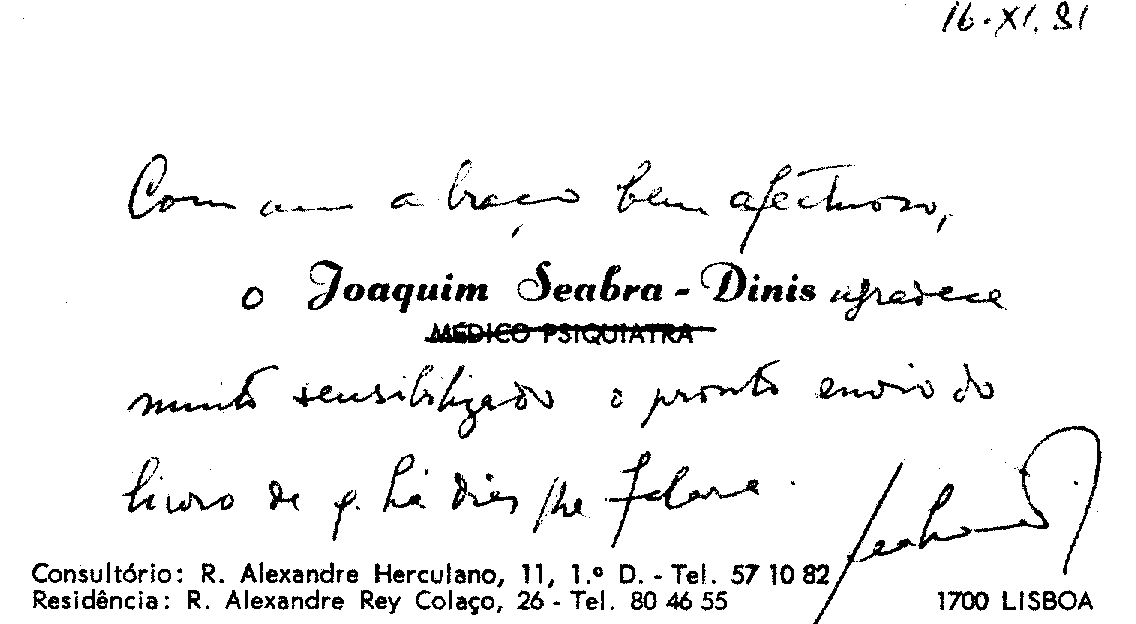 16.XI.81
Com um abraço bem afectuoso,
o Joaquim Seabra-Dinis agradece
MÉDICO PSIQUIATRA
muito sensibilizado o pronto envio do
livro de q. há dias lhe falara.
Consultório: R. Alexandre Herculano, 11, 1.º D. - Tel. 57 10 82
Residência: R. Alexandre Rey Colaço, 26 - Tel. 80 46 55 1700 LISBOA